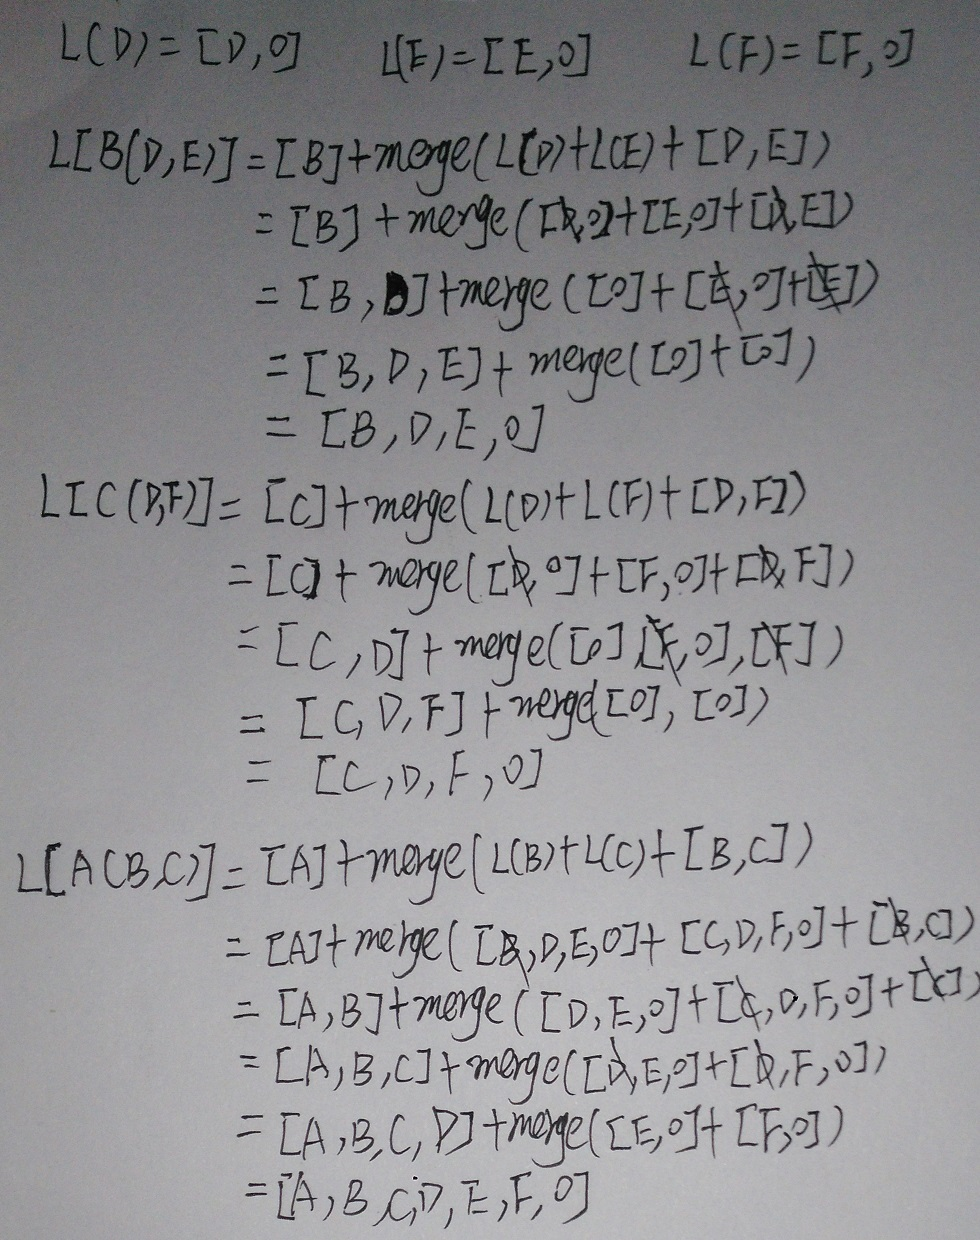 L(D)=[D,0] L(E)=[E,0] L(F)=[F,0]
L[B(D,E)]=[B]+merge(L(D)+L(E)+[D,E])
=[B]+merge([D,0]+[E,0]+[D,E])
=[B,D]+merge([0]+[E,0]+[E])
=[B,D,E]+merge([0]+[0])
=[B,D,E,0]
L[C(D,F)]=[C]+merge(L(D)+L(F)+[D,F])
=[C]+merge([D,0]+[F,0]+[D,F])
=[C,D]+merge([0],[F,0],[F])
=[C,D,F]+merge([0],[0])
=[C,D,F,0]
L[A(B,C)]=[A]+merge(L(B)+L(C)+[B,C])
=[A]+merge([B,D,E,0]+[C,D,F,0]+[B,C])
=[A,B]+merge([D,E,0]+[C,D,F,0]+[C])
=[A,B,C]+merge([D,E,0]+[D,F,0])
=[A,B,C,D]+merge([E,0]+[F,0])
=[A,B,C,D,E,F,0]